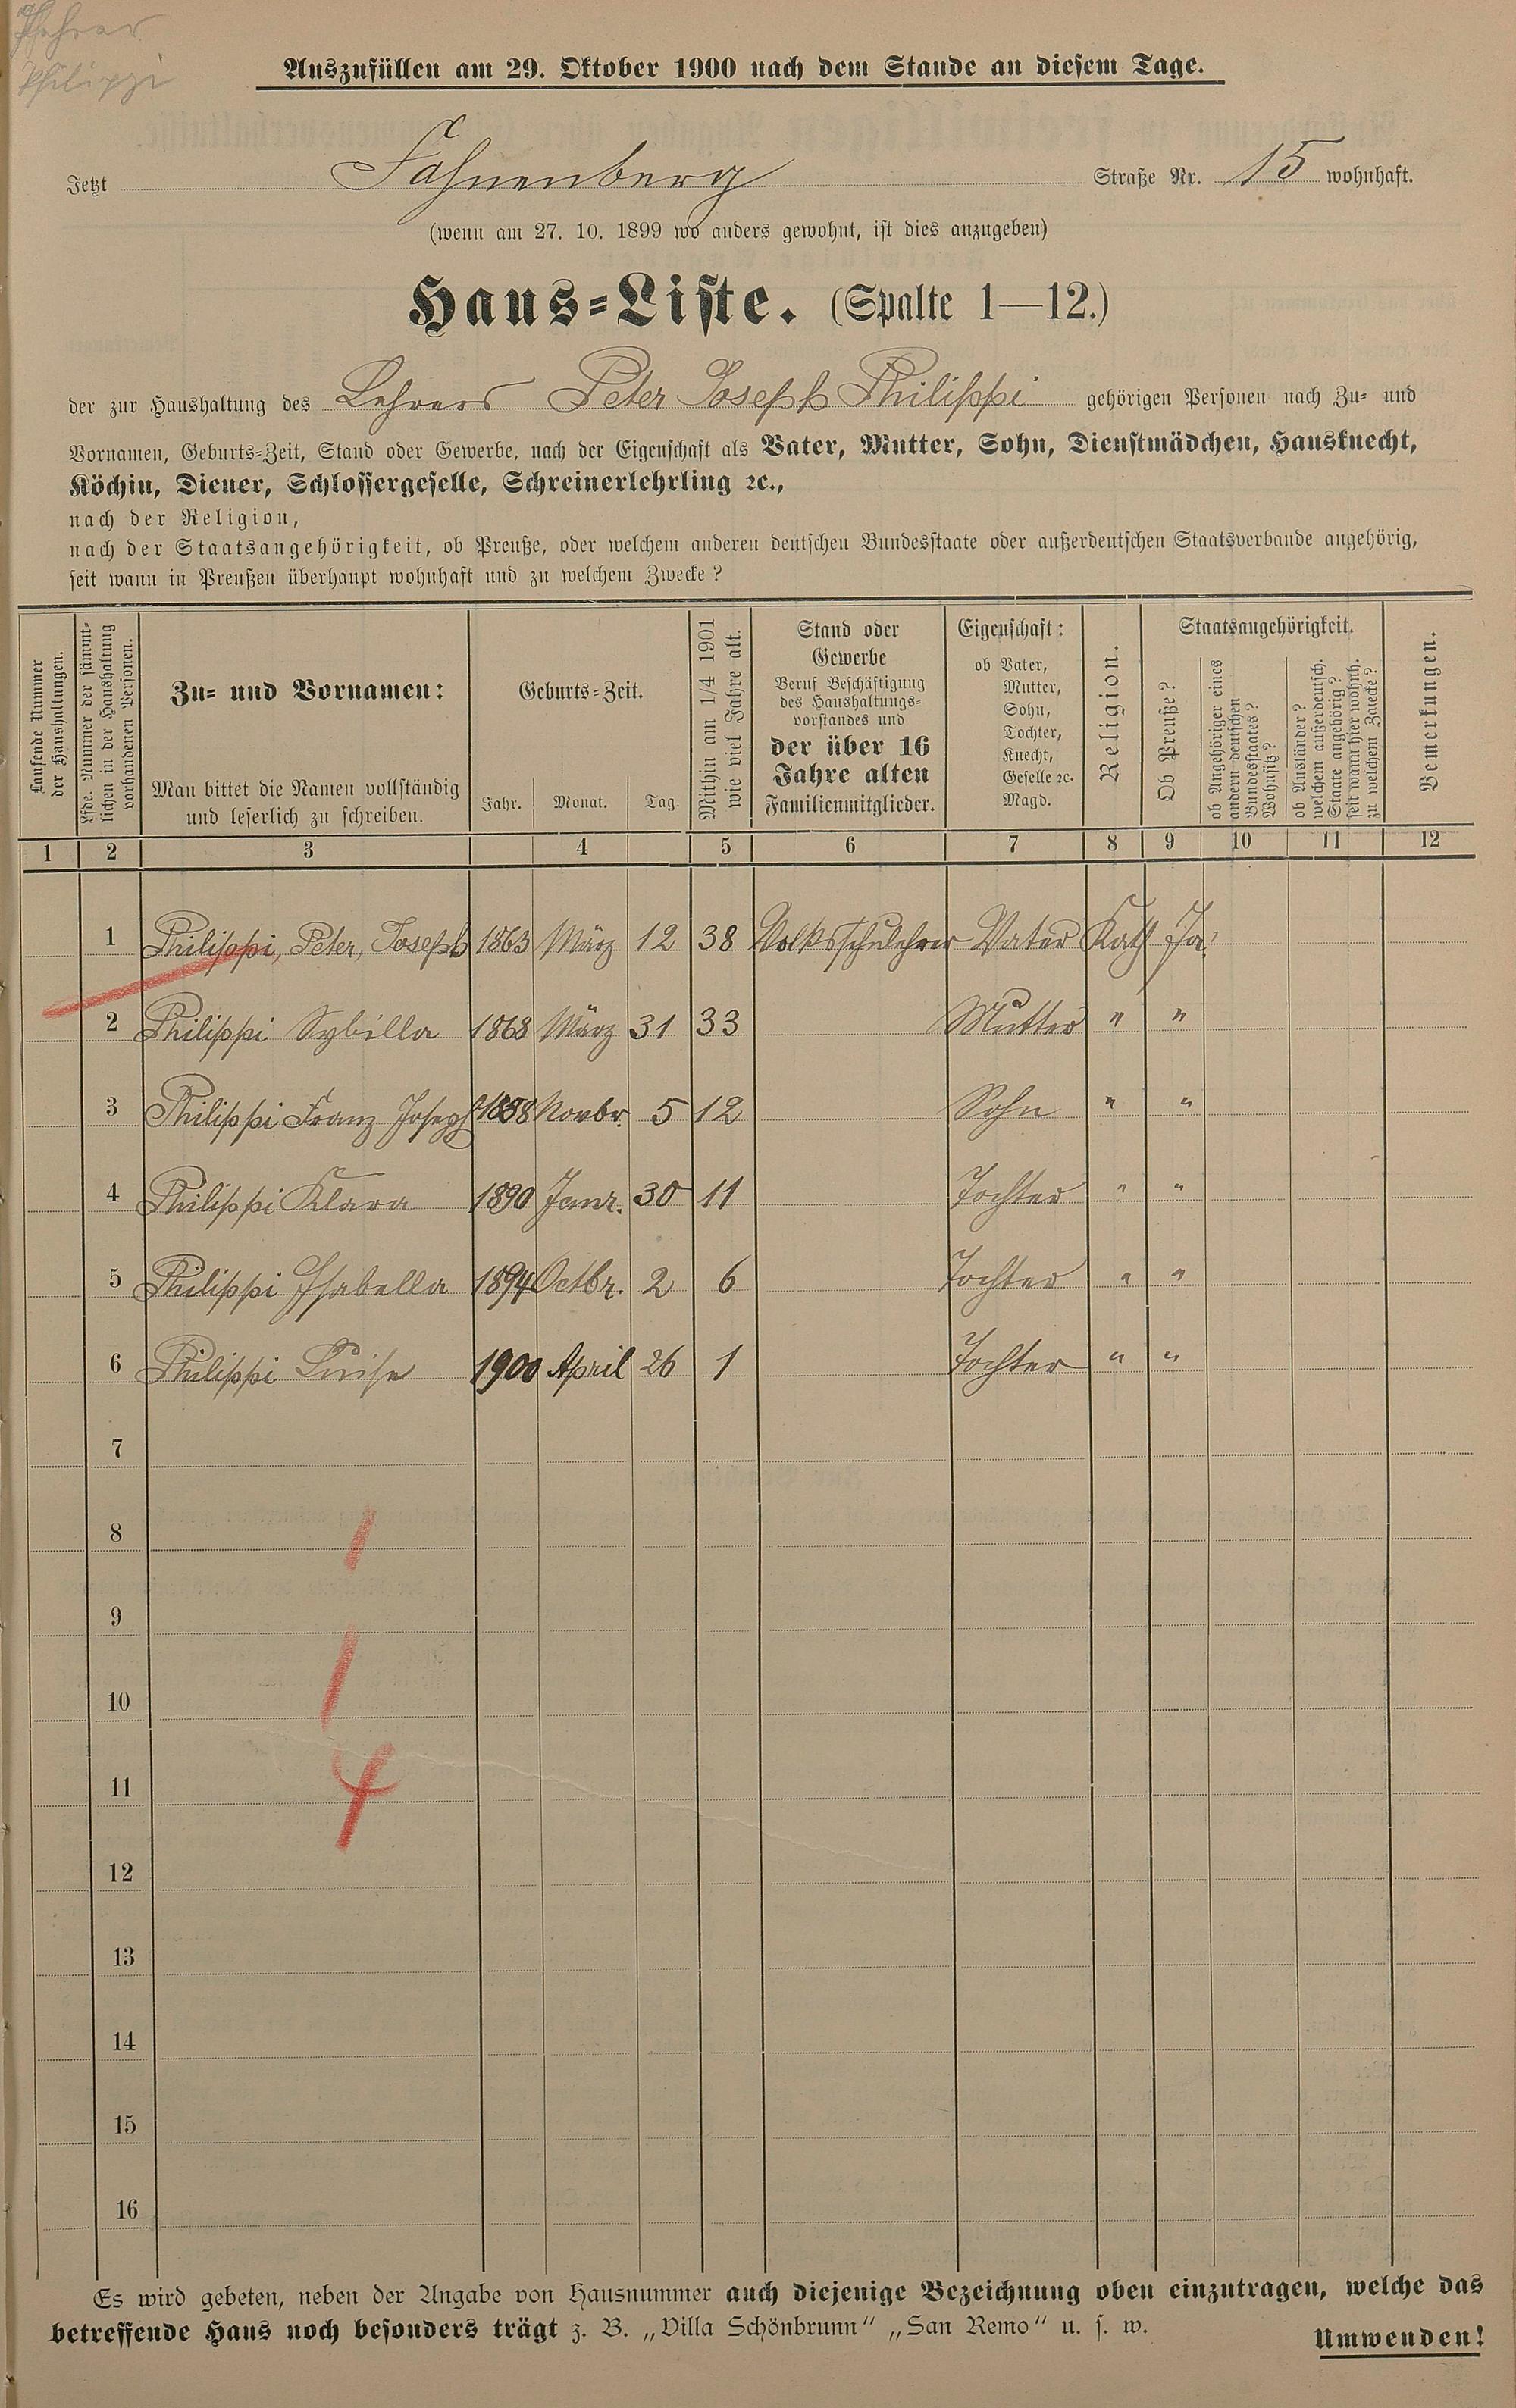 Lehrer
Philippi
Auszufüllen am 29. Oktober 1900 nach dem Stande an diesem Tage.
Jetzt Fahnenberg Straße Nr. 15 wohnhaft.
(wenn am 27. 10. 1899 wo anders gewohnt, ist dies anzugeben)
Haus-Liste. (Spalte 1—12.)
der zur Haushaltung des Lehrers Peter Joseph Philippi gehörigen Personen nach Zu- und
Vornamen, Geburts-Zeit, Stand oder Gewerbe, nach der Eigenschaft als Vater, Mutter, Sohn, Dienstmädchen, Hausknecht,
Köchin, Diener, Schlossergeselle, Schreinerlehrling ꝛc.,
nach der Religion,
nach der Staatsangehörigkeit, ob Preuße, oder welchem anderen deutschen Bundesstaate oder außerdeutschen Staatsverbande angehörig,
seit wann in Preußen überhaupt wohnhaft und zu welchem Zwecke?
Laufende Nummer
der Haushaltungen.
Lfde. Nummer der sämmt-
lichen in der Haushaltung
vorhandenen Personen.
Zu- und Vornamen:
Man bittet die Namen vollständig
und leserlich zu schreiben.
Geburts-Zeit.
Jahr. Monat. Tag.
Mithin am 1/4 1901
wie viel Jahre alt.
Stand oder
Gewerbe
Beruf Beschäftigung
des Haushaltungs-
vorstandes und
der über 16
Jahre alten
Familienmitglieder.
Eigenschaft:
ob Vater,
Mutter,
Sohn,
Tochter,
Knecht,
Geselle ꝛc.
Magd.
Religion.
Staatsangehörigkeit.
Ob Preuße?
ob Angehöriger eines
andern deutschen
Bundesstaates?
Wohnsitz?
ob Ausländer?
welchem außerdeutsch.
Staate angehörig?
seit wann hier wohnh.
zu welchem Zwecke?
Bemerkungen.
1 2 3 4 5 6 7 8 9 10 11 12
1 Philippi, Peter, Joseph 1863 März 12 38 Volksschullehrer Vater Kath Ja.
2 Philippi Sybilla 1868 März 31 33 Mutter " "
3 Philippi Franz Joseph 1888 Novbr. 5 12 Sohn " "
4 Philippi Klara 1890 Janr. 30 11 Tochter " "
5 Philippi Isabella 1894 Octbr. 2 6 Tochter " "
6 Philippi Luise 1900 April 26 1 Tochter " "
7
8
1
9
1
10
11
4
12
13
14
15
16
Es wird gebeten, neben der Angabe von Hausnummer auch diejenige Bezeichnung oben einzutragen, welche das
betreffende Haus noch besonders trägt z. B. „Villa Schönbrunn" „San Remo" u. s. w.
Umwenden!